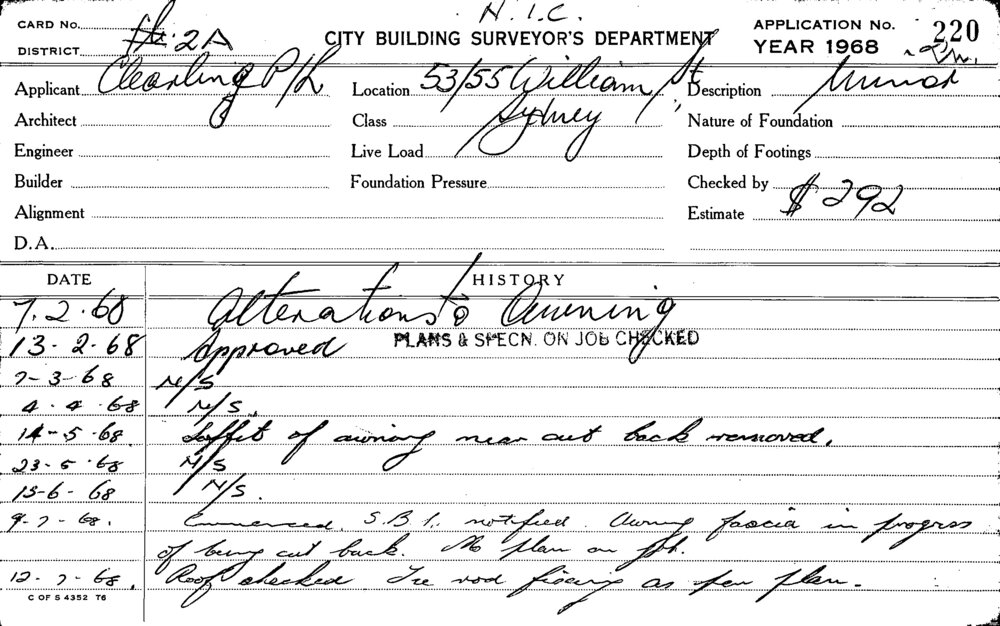 N.I.C.
CARD No.
DISTRICT 2A
CITY BUILDING SURVEYOR'S DEPARTMENT
APPLICATION No. 220
YEAR 1968
Applicant Clearling P/L
Location 53/55 William St,
Description Minor
Architect
Class Sydney
Nature of Foundation
Engineer
Live Load
Depth of Footings
Builder
Foundation Pressure
Checked by
Alignment
Estimate $292
D.A.
DATE HISTORY
7.2.68 Alterations to Awning
13-2-68 Approved PLANS & SPECN. ON JOB CHECKED
7-3-68 N/S
4.4.68 N/S.
14-5-68 Soffit of awning near cut back removed.
23-5-68 N/S
13-6-68 N/S.
9-7-68. Commenced. S.B.I. notified. Awning fascia in progress
of being cut back. No plan on job.
12-7-68. Roof checked Tie rod fixing as per plan.
C OF S 4352 T6